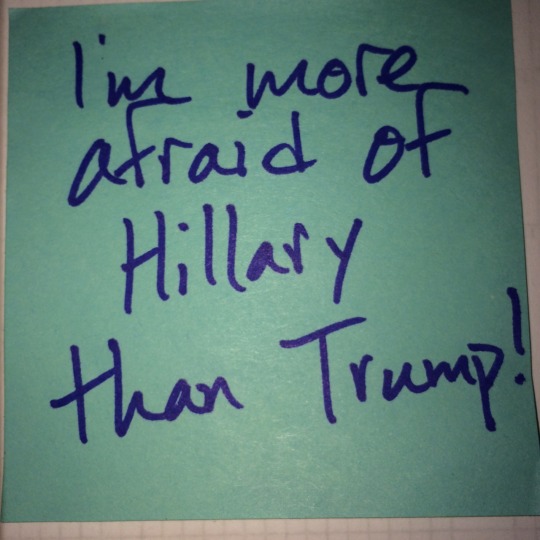 I'm more
afraid of
Hillary
than Trump!